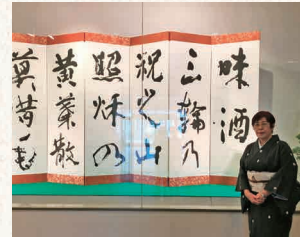 味酒
三輪乃
祝之山
照秌乃
黄葉散
莫惜毛